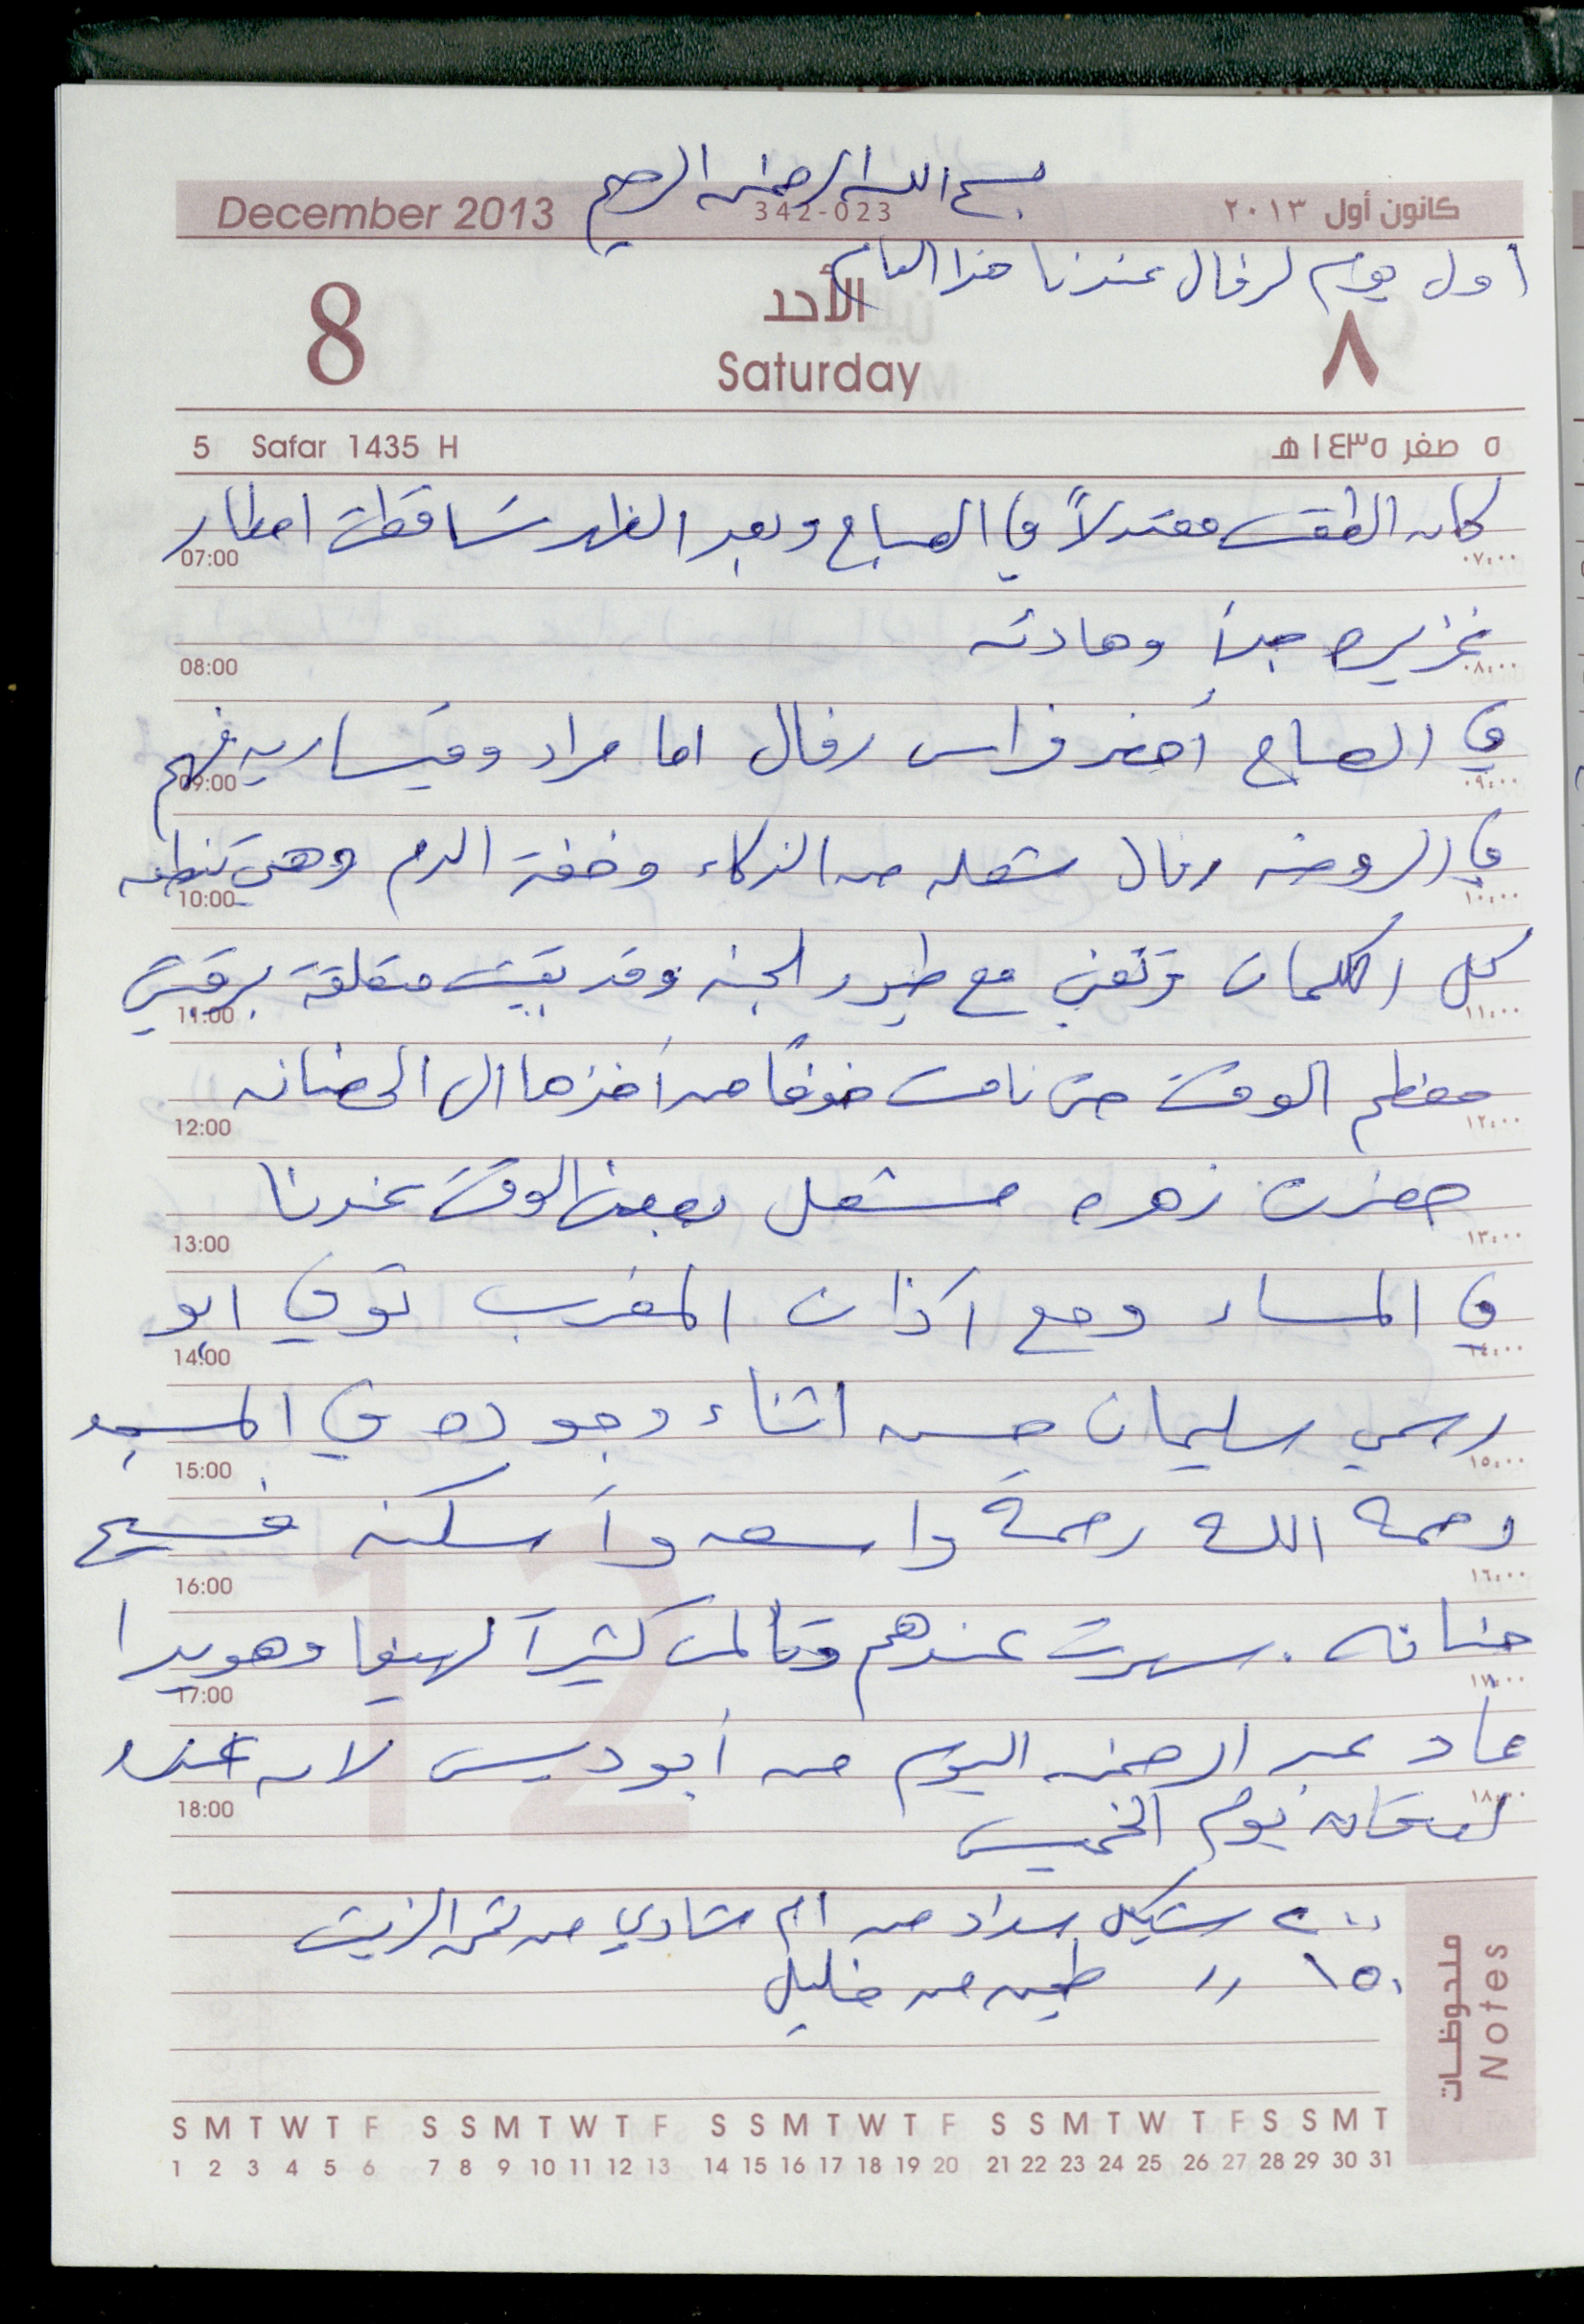 بسم الله الرحمن الرحيم
December 2013 342-023 كانون أول ٢٠١٣
اول يوم لرفال عندنا هذا العام
8 الأحد ٨
Saturday
5 Safar 1435 H ٥ صفر ١٤٣٥ هـ
كان الطقس معتدلاً في الصباح وبعد الظهر تساقطت امطار
07:00 ٠٧:٠٠
غزيره جداً وهادئه
08:00 ٠٨:٠٠
في الصباح أحضر فراس رفال اما مراد وقيساريه فهم
09:00 ٠٩:٠٠
في الروضه رفال شعله من الذكاء وخفة الدم وهي تنطق
10:00 ١٠:٠٠
كل الكلمات وتغني مع طيور الجنه وقد بقيت متعلقة برقبتي
11:00 ١١:٠٠
معظم الوقت حتى نامت خوفاً من أخذها الى الحضانه
12:00 ١٢:٠٠
حضرت زهره مشعل بعض الوقت عندنا
13:00 ١٣:٠٠
في المساء ومع آذان المغرب توفي ابو
14:00 ١٤:٠٠
رسمي سليمان حسن اثناء وجوده في المسجد
15:00 ١٥:٠٠
رحمه الله رحمة واسعه وأسكنه فسيح
16:00 ١٦:٠٠
جنانه. سهرت عندهم وتألمت كثيراً لهيفا وهويدا
17:00 ١٧:٠٠
عاد عبد الرحمن اليوم من أبوديس لان عنده
18:00 ١٨:٠٠
امتحان يوم الخميس
٢٠٠ شيكل سداد من ام شادي من ثمن الزيت
١٥٠ // طحين من خليل
ملحوظات
Notes
S M T W T F S S M T W T F S S M T W T F S S M T W T F S S M T
1 2 3 4 5 6 7 8 9 10 11 12 13 14 15 16 17 18 19 20 21 22 23 24 25 26 27 28 29 30 31
12